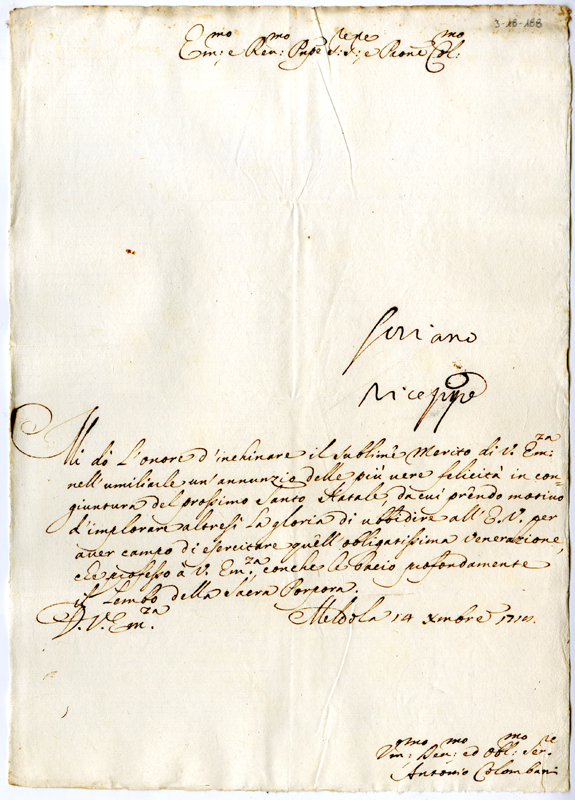 3-16-168
Em:mo e Reu:mo Pnpe s:r s:r e Prone Col:mo
Mi dò L'onore d'inchinare il sublime Merito di V. Em:za
nell'umiliarle un'annunzio delle più uere felicità in con=
giuntura del prossimo Santo Natale, da cui prendo motiuo
d'implorare altresì la gloria di ubbidire all'E.V. per
auer campo di esercitare quell'obligatissima Venerazione,
che professo à V. Em:za, con che le bacio profondamente
il Lembo della Sacra Porpora.
D.V. Em.za Meldola 14 Xmbre
Vm:mo Deu:mo ed Obl:mo Ser.re
Antonio Colombani